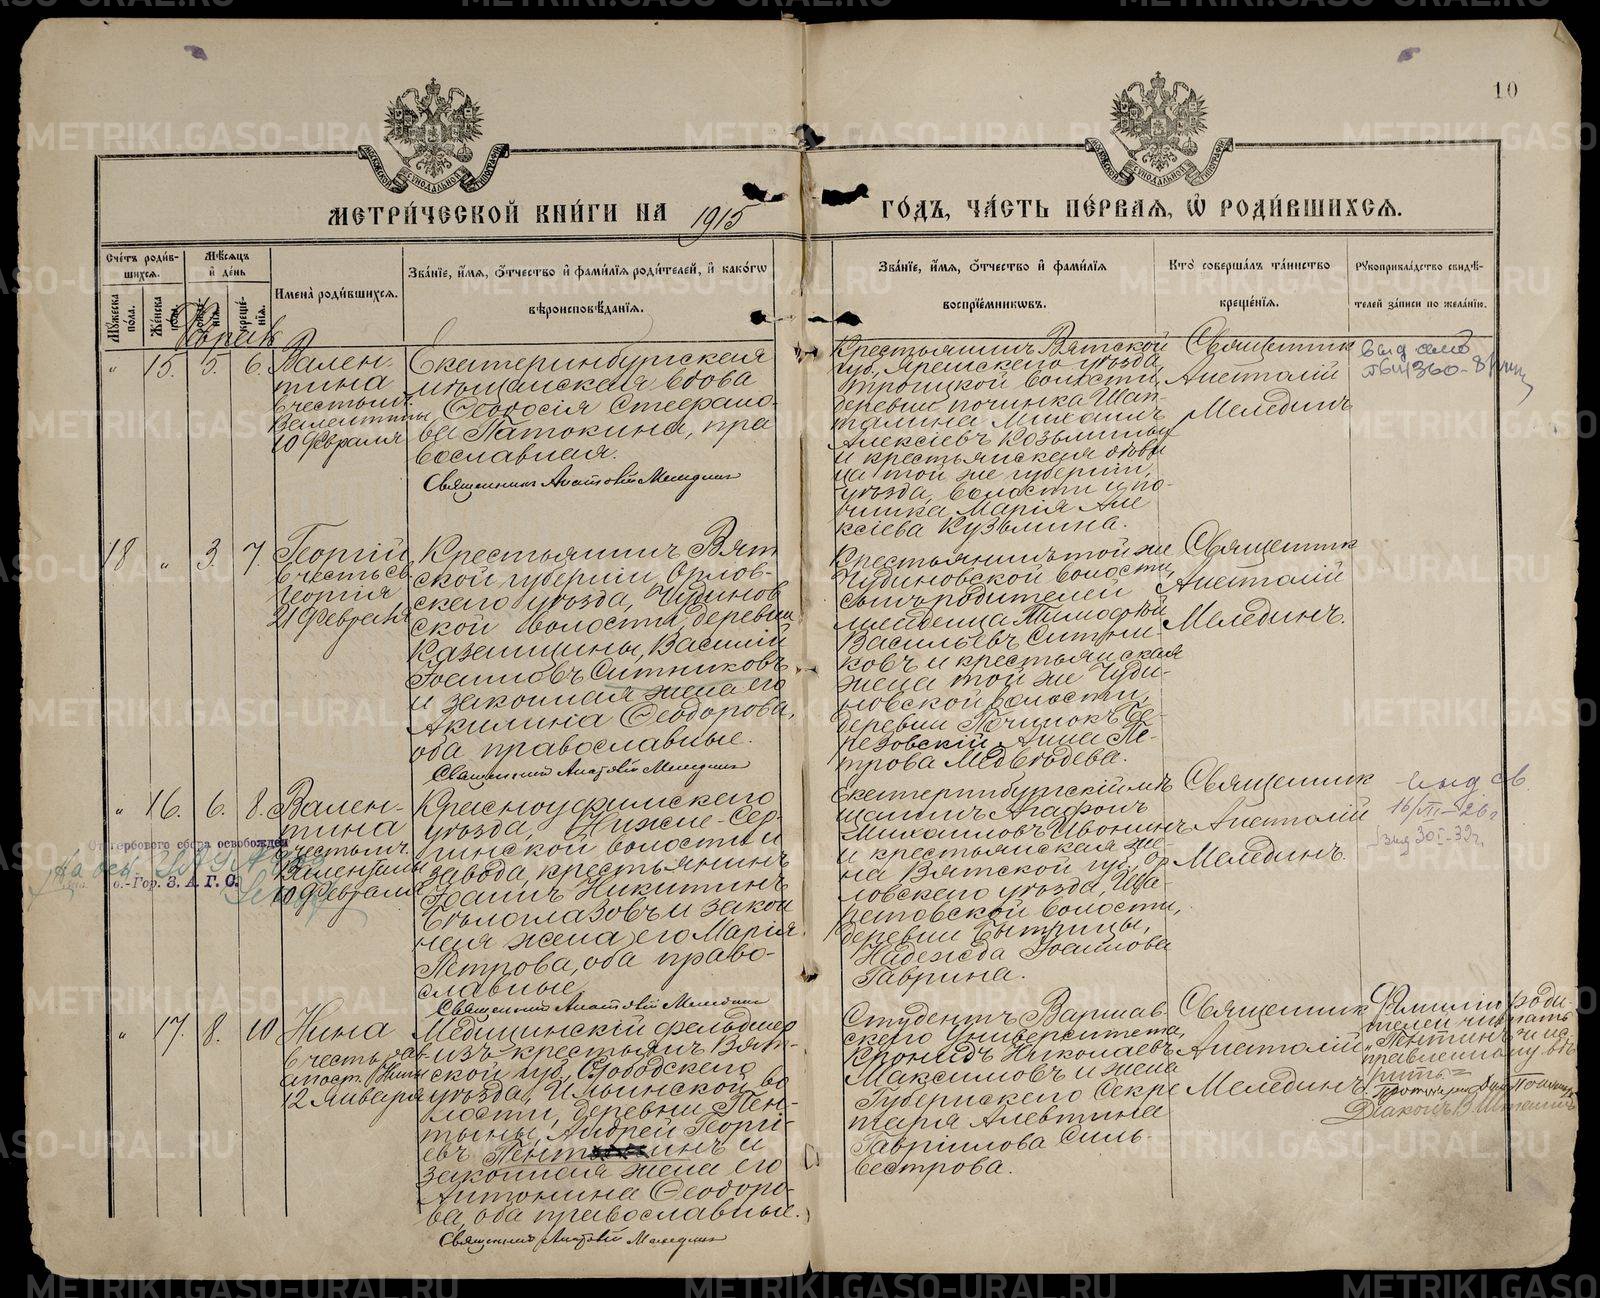 10
МЕТРИ́ЧЕСКОЙ КНИ́ГИ НА 1915 ГО́ДЪ, ЧА́СТЬ ПЕ́РВАЯ, Ѡ РОДИ́ВШИХСЯ.
Сче́тъ роди́вшихся.
Му́жеска по́ла.
Же́нска по́ла.
Мѣ́сяцъ и́ де́нь
рожде́нія.
креще́нія.
Имена̀ роди́вшихся.
Зва́ніе, и́мя, о́тчество и́ фами́лія роди́телей, и́ како́гѡ вѣроисповѣ́данія.
Зва́ніе, и́мя, о́тчество и́ фами́лія воспріе́мниковъ.
Кто̀ соверша́лъ та́инство креще́нія.
Рукоприкла́дство свидѣ́телей за́писи по жела́нію.
Февраль
" 15. 5. 6.
Вален-
тина
в честь м.
Валентины
10 Февраля
Екатеринбургская
мѣщанская вдова
Ѳеодосія Стефано-
ва Патокина, пра
вославная.
Священникъ Анатолій Мелединъ
Крестьянинъ Вятской
губ., Яренскаго уѣзда,
Троицкой волости,
деревни починка Шап-
талина Михаилъ
Алексіевъ Козьминых
и крестьянская дѣви
ца той же губерніи,
уѣзда, волости и по-
чинка Марія Але
ксіева Кузьмина.
Священник
Анатолій
Мелединъ
18 " 3. 7.
Георгій
в честь св
Георгія
21 Февраля
Крестьянинъ Вят
ской губерніи Орлов-
скаго уѣзда, Чудинов
ской волости, деревни
Казанщины, Василій
Іоанновъ Ситниковъ
и законная жена его
Акилина Ѳеодорова,
оба православные.
Священникъ Анатолій Мелединъ
Крестьянинъ той же
Чудиновской волости,
сынъ родителей
младенца Тимофей
Васильевъ Ситни-
ковъ и крестьянская
жена той же Чуди-
новской волости,
деревни Починокъ Бе-
резовскій Анна Пе-
трова Медвѣдева.
Священник
Анатолій
Мелединъ.
" 16. 6. 8.
Вален-
тина
в честь м.
Валентины
10 Февраля
От гербового сбора освобожден
о.-Гор. З. А. Г. С.
Красноуфимскаго
уѣзда, Нижне-Сер-
гинской волости и
завода, крестьянинъ
Іоаннъ Никитинъ
Бѣлоглазовъ и закон
ная жена его Марія
Петрова, оба право-
славные.
Священникъ Анатолій Меледин
Екатеринбургскій мѣ
щанинъ Агафонъ
Михаиловъ Ивонинъ
и крестьянская же-
на Вятской губ. Ор
ловскаго уѣзда, Ша-
ретовской волости,
деревни Бытрицы,
Надежда Іоаннова
Гаврина.
Священник
Анатолій
Мелединъ.
выд св.
16/VII-26 г
выд 30 I-32 г.
" 17. 8. 10
Нина
в честь рав-
апост. Нины
12 Января
Медицинскій фельдшер
изъ крестьянъ Вят-
ской губ., Слободскаго
уѣзда, Ильинской во
лости, деревни Пен-
тыны, Андрей Георгі-
евъ Пент инъ и
законная жена его
Антонина Ѳеодоро-
ва, оба православные.
Священникъ Анатолій Мелединъ
Студентъ Варшав-
скаго Университета,
Кронидъ Николаевъ
Максимовъ и жена
Губернскаго Секре
таря Алевтина
Гавріилова Силь
вестрова.
Священник
Анатолій
Меледин
Фамилію роди-
телей читать
"Пентинъ" и ис-
правленному вѣ
рить=
Діаконъ В.